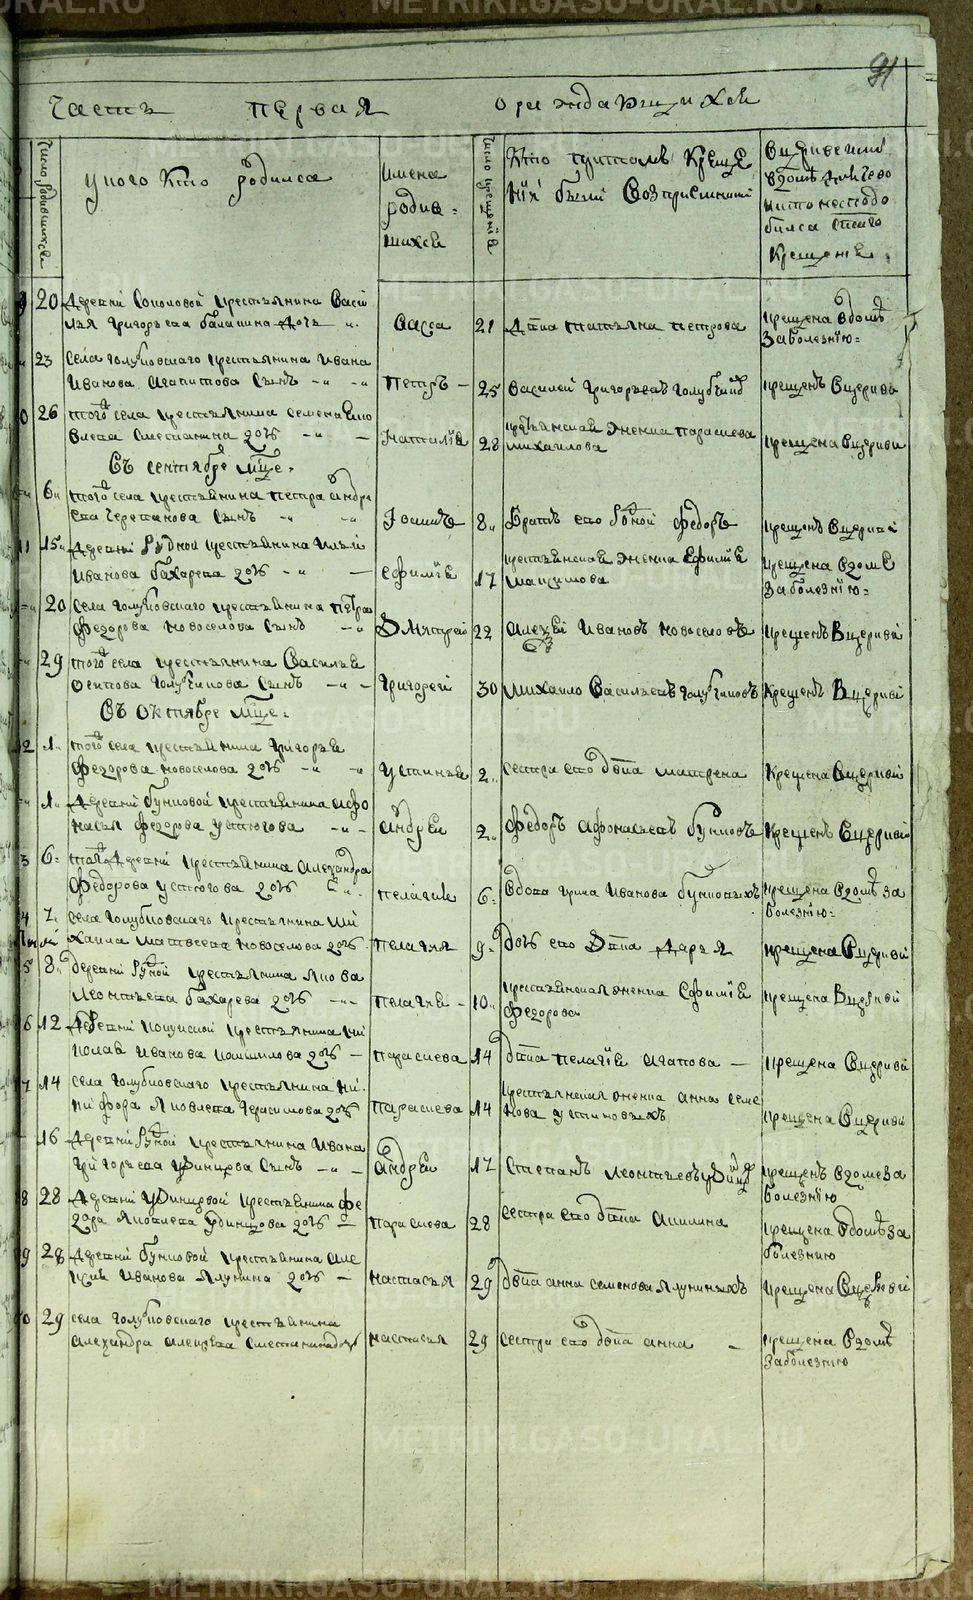 91
Часть первая о раждающихся
Число родившихся
у кого кто родился
имена
родив-
шихся
число крещенія
Кто притомъ Креще
нiи были Возприемники
Вцеркве или
вдоме для чего
кто несподо
бился
Крещения
20 деревни Соколовой крестьянина Васи
лья Григорьева Балакина дочь
Васса
21
дѣвка татьяна петрова
крещена вдомѣ
Заболезнію
23 Села голубковскаго крестьянина Ивана
Иванова Агапитова Сынъ
петръ
25
василей григорьевъ голубчик
крещенъ вцеркви
26 того села крестьянина Семена
Сметанина дочь
наталія
28
крестьянская женка параскева
михаилова
крещена вцеркви
Въ сентябрѣ мцѣ
6 того села крестьянина петра андре
ева черепанова Сынъ
Іоаннъ
8
Братъ ево родной федоръ
крещенъ вцеркви
11 15 деревни Рудной крестьянина
Иванова бахарева дочь
ефимія
17
крестьянская женка Ефимія
максимова
крещена вдоме
За болезнію
20 Села голубковскаго крестьянина петра
Федорова Новоселова Сынъ
Дмитрей
22
Алексѣй Ивановъ Новоселовъ
крещенъ Вцеркви
29 того села крестьянина Василья
осипова Голубчикова Сынъ
Григорей
30
Михаило Васильевъ голубчиковъ
Крещенъ Вцеркви
Въ Октябре мцѣ
12 1 того села крестьянина Григорья
Федорова новоселова дочь
устинья
2
Сестра ево дѣвка матрена
Крещена вцеркви
1 деревни бунковой крестьянина афо
насья федорова устюгова
Андрей
2
Федоръ Афонасьевъ бунковъ
Крещенъ Вцеркви
13 6 той деревни крестьянина Александра
Федорова устюгова дочь
пелагия
6
вдова Ирина Иванова бунковыхъ
крещена вдомѣ за
болезнію
14 7 села голубковскаго крестьянина Ми
хаила Матвеева Новоселова дочь
Пелагия
9
дочь ево дѣвка дарья
крещена Вцеркви
15 8 деревни Рудной крестьянина Якова
Леонтьева бахарева дочь
пелагия
10
крестьянская женка Ефимія
Федорова
крещена Вцеркви
16 12 деревни крестьянина Ни
колая Иванова Кокшилова дочь
параскева
14
дѣвка пелагія Агапова
крещена Вцеркви
17 14 села голубковскаго крестьянина Ни
кифора Яковлева Герасимова дочь
параскева
14
крестьянская женка Анна Семе
нова устиновыхъ
крещена Вцеркви
16 деревни Рудной крестьянина Ивана
григорьева удинцова Сынъ
Андрей
17
Степанъ Леонтьевъ
крещенъ вдоме за
болезнію
18 28 деревни удинцовой крестьянина Фе
дора Яковлева удинцова дочь
параскева
28
Сестра ево дѣвка Акилина
крещена вдомѣ за
болезнию
19 28 деревни бунковой крестьянина Але
ксѣя Иванова Ялунина дочь
настасья
29
дѣвка анна семенова Ялуниныхъ
крещена Вцеркви
20 29 села голубковскаго крестьянина
александра алексѣева Сметанина дочь
настасья
29
Сестра ево дѣвка анна
крещена вдомѣ
Заболезнию
METRIKI.GASO-URAL.RU